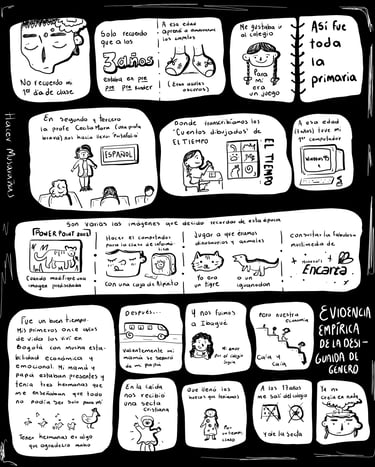 No recuerdo mi
1er día de clase
Solo recuerdo
que a los
3 años
estaba en pre
pre pre kinder
A esa edad
aprendí a amarrarme
los zapatos
(Eran medias
oscuras)
Me gustaba ir
al colegio
Para
mí
era un
un juego
Así fue
toda
la
primaria
Hacer Musarañas
En segundo y tercero
la profe Cecilia María (una profe
brava) nos hacía llenar "Portafolio"
ESPAÑOL
Donde transcribíamos los
"Cuentos dibujados" de
EL TIEMPO
EL TIEMPO
A esa edad
tuve mi
1er computador
Windows 95
Son varias las imágenes que decido recordar de esta época
POWERPOINT 2003
Cuando modifiqué una
imagen prediseñada
Hacer el computador
para la clase de informá-
tica
con una caja de Alpinito
Jugar a que éramos
dinosaurios y animales
Yo era
un tigre
o un
iguanodon
Consultar la fabulosa
multimedia de
Microsoft
Encarta
Fue un buen tiempo.
Mis primeros once años
de vida los viví en
Bogotá con mucha esta-
bilidad económica y
emocional. Mi mamá y
papá estaban presentes y
tenía tres hermanas que
me enseñaban que todo
no podía ser solo para mí
Tener hermanas es algo
que agradezco mucho
Después...
valientemente mi
mamá se separó
de mi papá
Y nos fuimos
a Ibagué
Pero nuestra
economía
Caía y
caía
EVIDENCIA
EMPÍRICA
DE LA DESI-
GUALDAD DE
GÉNERO
En la caída
nos recibió
una secta
cristiana
Que llenó los
vacíos que teníamos
Por un
tiempo
A los 17 años
me salí del colegio
y de la secta
Ya no
creía en nada